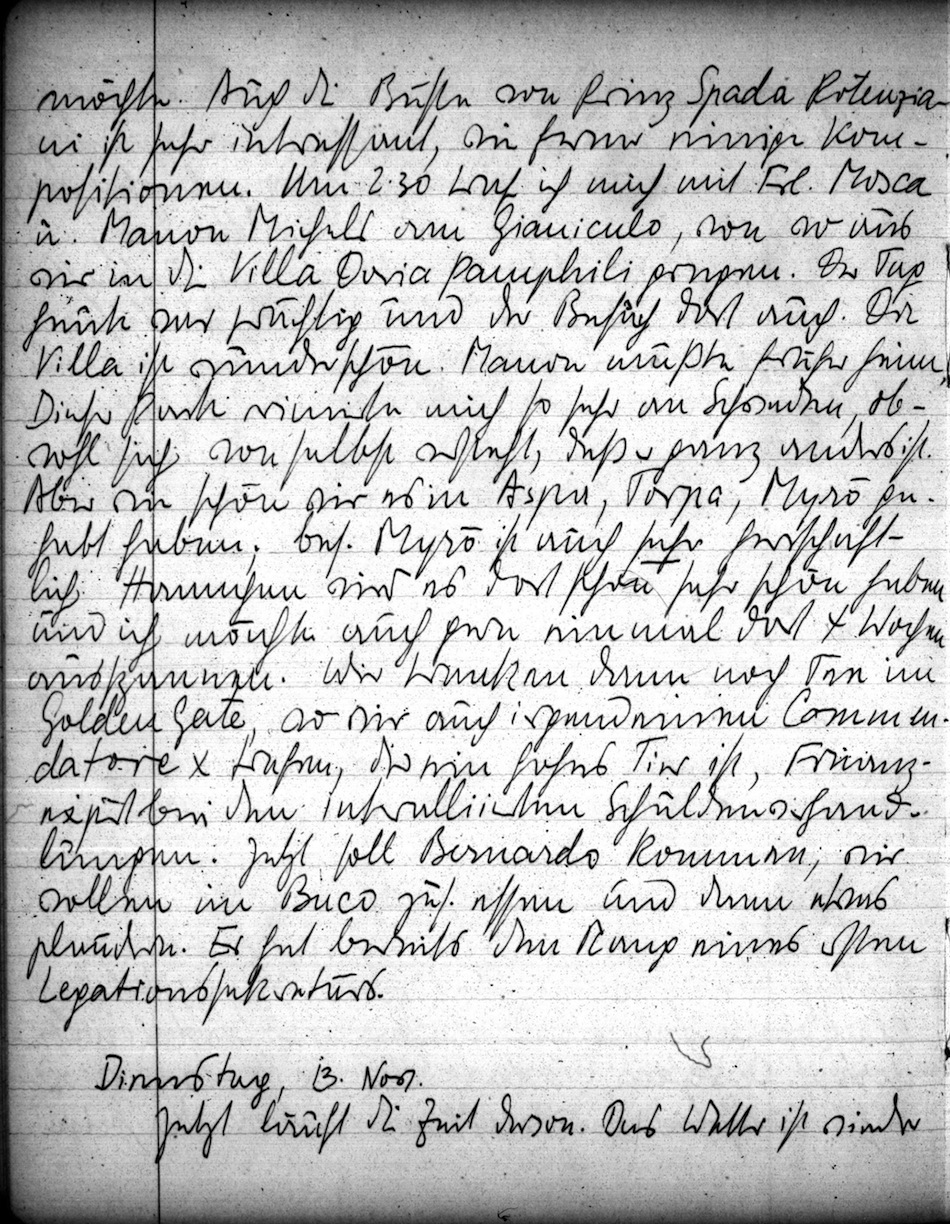 möchte. Auch die Büste von Prinz Spada Potenzia-
ni ist sehr interessant, wie ferner einige Kom-
positionen. Um 2.30 traf ich mich mit Frl. Mosca
u. Manon Michels am Gianiculo, von wo aus
wir in die Villa Doria Pamphili gingen. Der Tag
heute war prächtig und der Besuch dort auch. Die
Villa ist wunderschön. Manon mußte früher heim.
Dieser Park erinnerte mich so sehr an Schweden, ob-
wohl sich von selbst versteht, daß er ganz anders ist.
Aber wie schön wir es in Aspa, Torpa, Myrö ge-
habt haben. bes. Myrö ist auch sehr herrschaft-
lich. Hannchen wird es dort schon sehr schön haben
und ich möchte auch gern einmal dort 4 Wochen
ausspannen. Wir tranken dann noch Tee im
Golden Gate, wo wir auch irgendeinen Commen-
datore x trafen, der ein hohes Tier ist, Finanz-
expert bei den interalliierten Schuldenverhand-
lungen. Jetzt soll Bernardo kommen, wir
wollen im Buco zus. essen und dann etwas
plaudern. Er hat bereits den Rang eines ersten
Legationssekretärs.
Dienstag, 13. Nov.
Jetzt läuft die Zeit davon. Das Wetter ist wieder